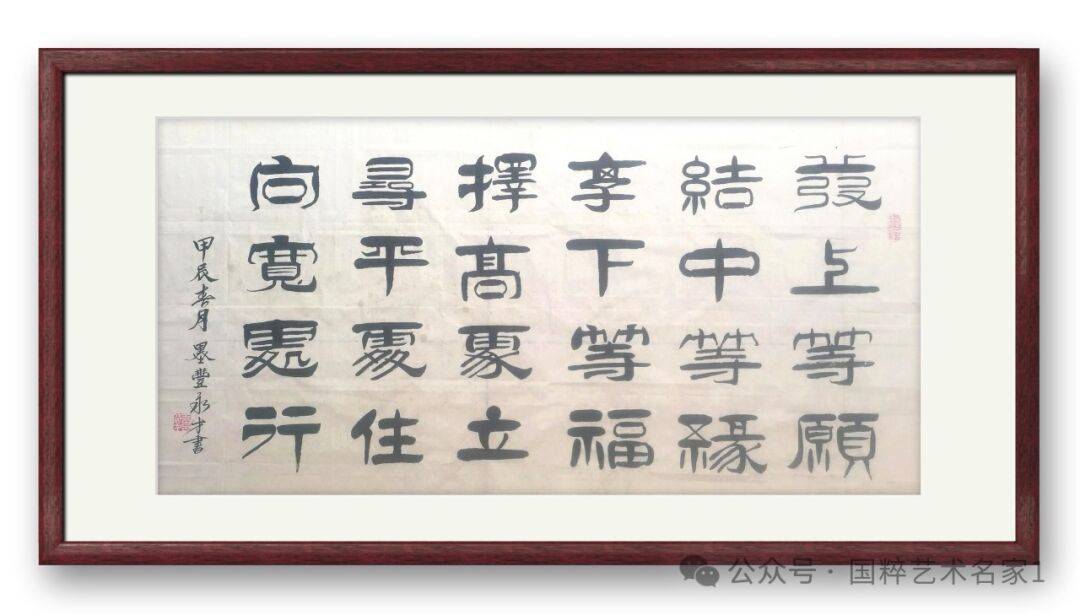 發上等願
結中等緣
享下等福
擇高處立
尋平處住
向寬處行
甲辰春月 墨豐永才書
公众号 · 国粹艺术名家1